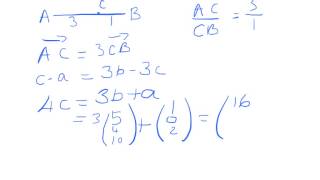 A 3 c B AC/CB = 3/1
AC = 3CB
c-a = 3b-3c
4c = 3b+a
= 3(5 4 10) + (1 0 2) = (16